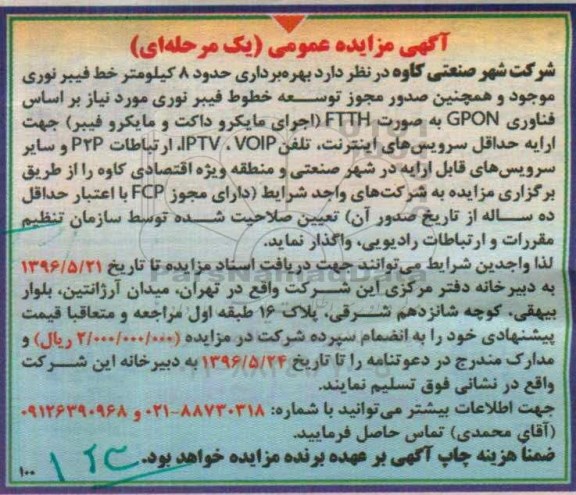 آگهی مزایده عمومی (یک مرحله‌ای)
شرکت شهر صنعتی کاوه در نظر دارد بهره‌برداری حدود ۸ کیلومتر خط فیبر نوری
موجود و همچنین صدور مجوز توسعه خطوط فیبر نوری مورد نیاز بر اساس
فناوری GPON به صورت FTTH (اجرای مایکرو داکت و مایکرو فیبر) جهت
ارایه حداقل سرویس‌های اینترنت، تلفن IPTV ، VOIP، ارتباطات P۲P و سایر
سرویس‌های قابل ارایه در شهر صنعتی و منطقه ویژه اقتصادی کاوه را از طریق
برگزاری مزایده به شرکت‌های واجد شرایط (دارای مجوز FCP با اعتبار حداقل
ده ساله از تاریخ صدور آن) تعیین صلاحیت شده توسط سازمان تنظیم
مقررات و ارتباطات رادیویی، واگذار نماید.
لذا واجدین شرایط می‌توانند جهت دریافت اسناد مزایده تا تاریخ ۱۳۹۶/۵/۲۱
به دبیرخانه دفتر مرکزی این شرکت واقع در تهران، میدان آرژانتین، بلوار
بیهقی، کوچه شانزدهم شرقی، پلاک ۱۶ طبقه اول مراجعه و متعاقبا قیمت
پیشنهادی خود را به انضمام سپرده شرکت در مزایده (۲/۰۰۰/۰۰۰/۰۰۰ ریال) و
مدارک مندرج در دعوتنامه را تا تاریخ ۱۳۹۶/۵/۲۴ به دبیرخانه این شرکت
واقع در نشانی فوق تسلیم نمایند.
جهت اطلاعات بیشتر می‌توانید با شماره: ۸۸۷۳۰۳۱۸-۰۲۱ و ۰۹۱۲۶۳۹۰۹۶۸
(آقای محمدی) تماس حاصل فرمایید.
ضمنا هزینه چاپ آگهی بر عهده برنده مزایده خواهد بود.
۱۰۰